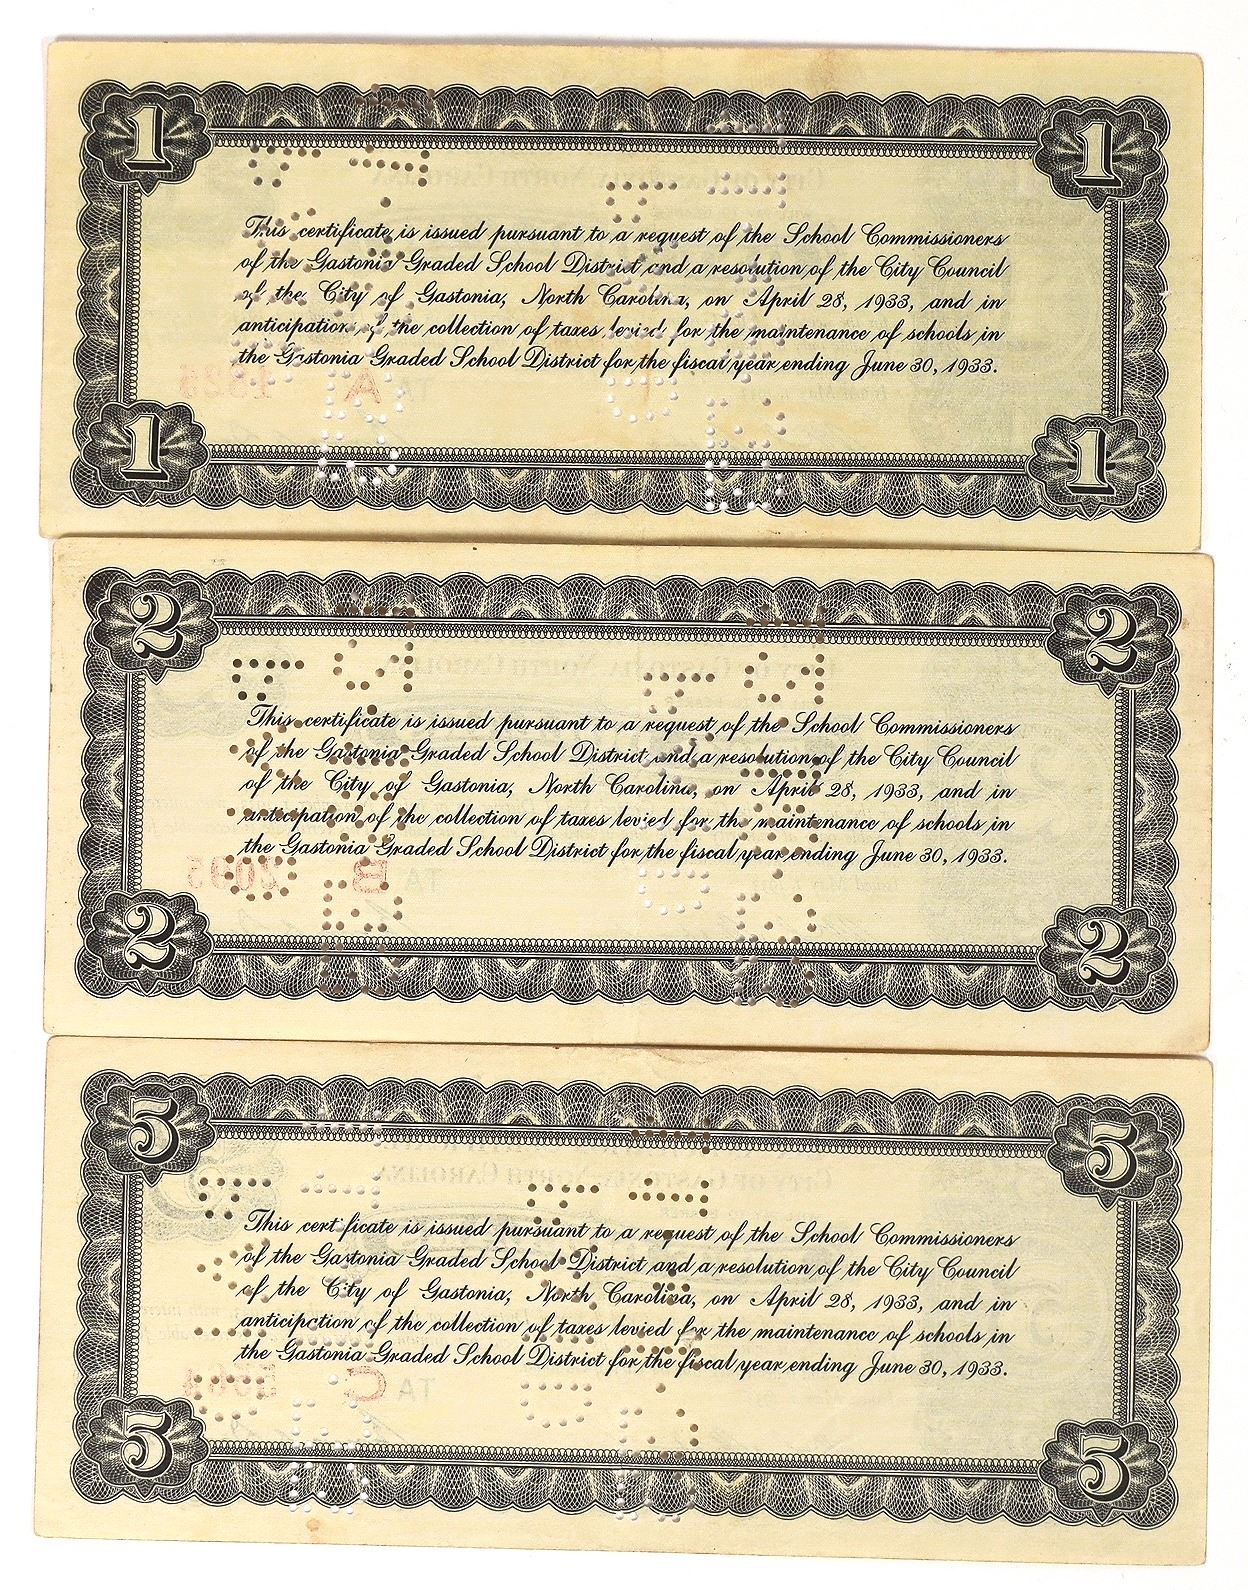 1 1
This certificate is issued pursuant to a request of the School Commissioners
of the Gastonia Graded School District and a resolution of the City Council
of the City of Gastonia, North Carolina, on April 28, 1933, and in
anticipation of the collection of taxes levied for the maintenance of schools in
the Gastonia Graded School District for the fiscal year ending June 30, 1933.
A
1 1
2 2
This certificate is issued pursuant to a request of the School Commissioners
of the Gastonia Graded School District and a resolution of the City Council
of the City of Gastonia, North Carolina, on April 28, 1933, and in
anticipation of the collection of taxes levied for the maintenance of schools in
the Gastonia Graded School District for the fiscal year ending June 30, 1933.
B
2 2
5 5
CITY OF GASTONIA, NORTH CAROLINA
This certificate is issued pursuant to a request of the School Commissioners
of the Gastonia Graded School District and a resolution of the City Council
of the City of Gastonia, North Carolina, on April 28, 1933, and in
anticipation of the collection of taxes levied for the maintenance of schools in
the Gastonia Graded School District for the fiscal year ending June 30, 1933.
C
5 5